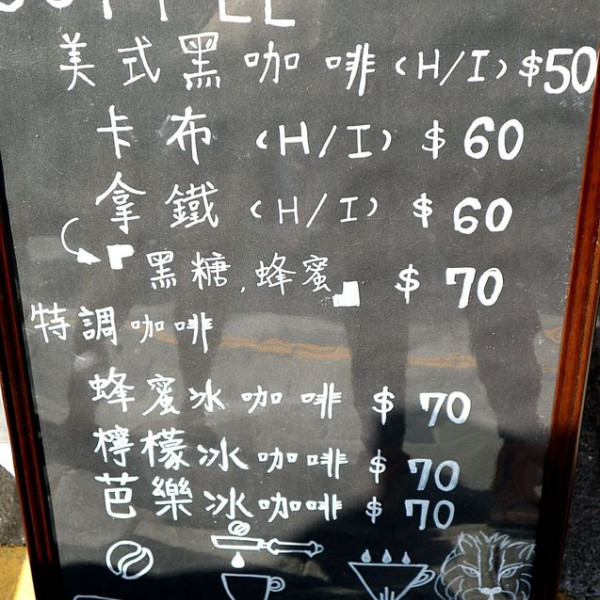 COFFEE
美式黑咖啡(H/I)$50
卡布(H/I)$60
拿鐵(H/I)$60
「黑糖.蜂蜜」$70
特調咖啡
蜂蜜冰咖啡$70
檸檬冰咖啡$70
芭樂冰咖啡$70